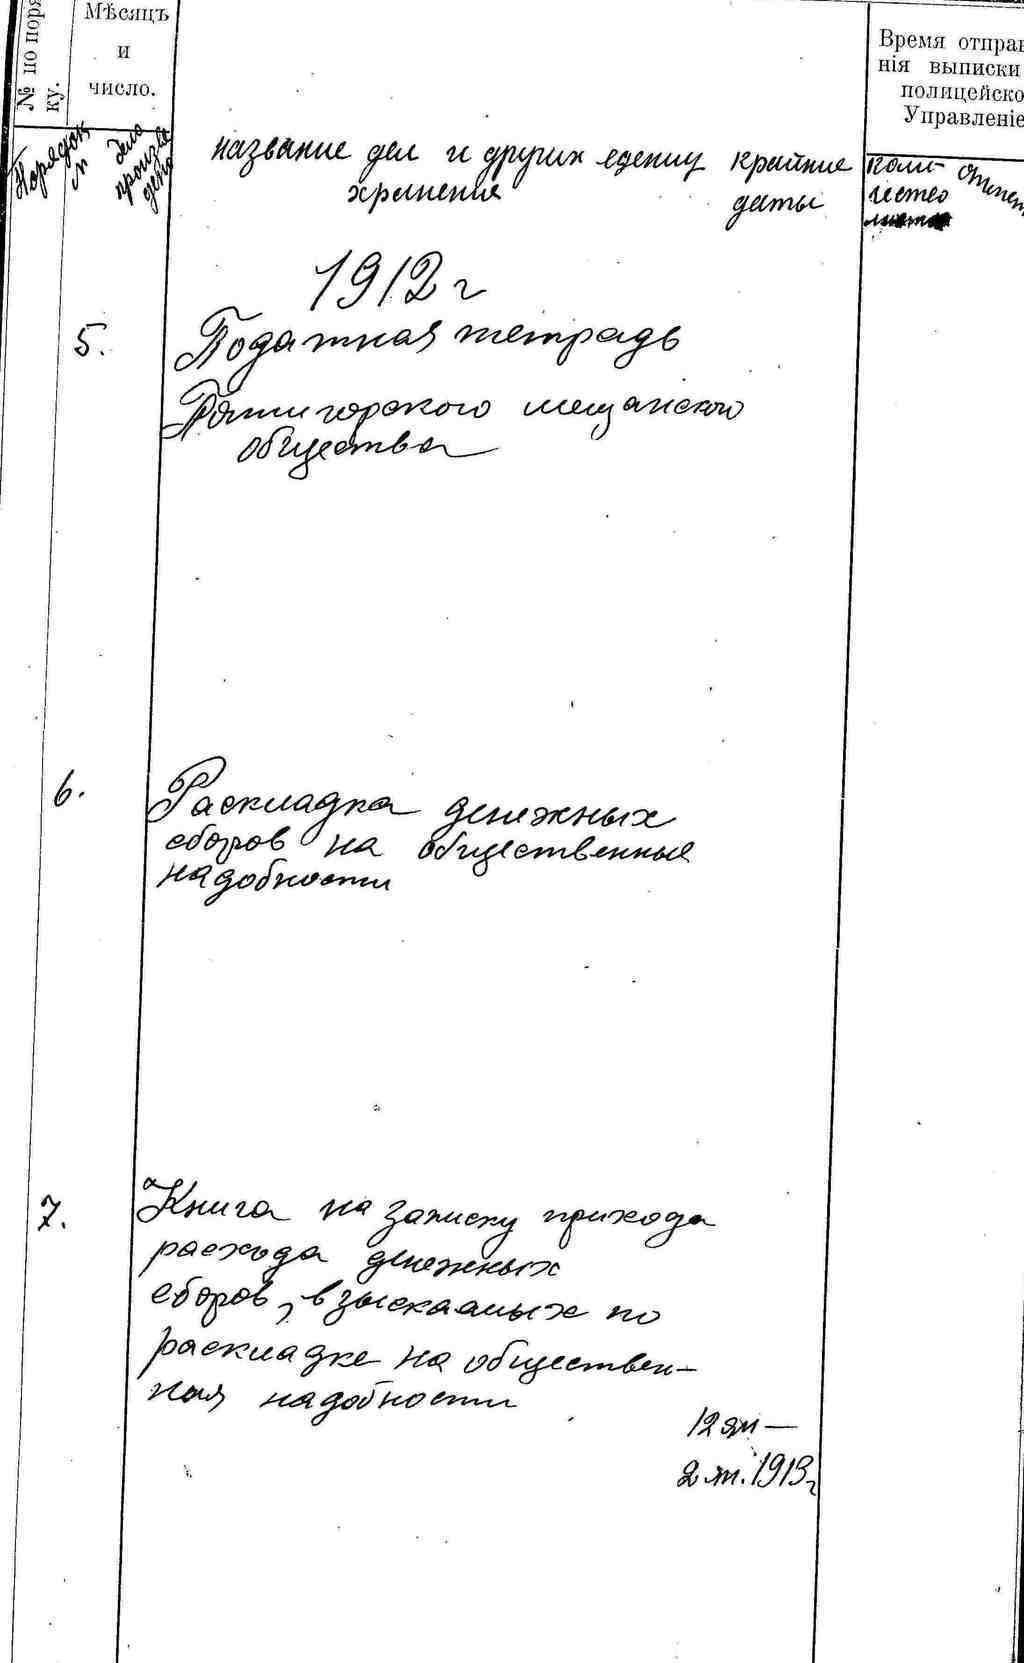 № по поря
ку.
Мѣсяцъ
и
число.
Время отправ
нія выписки
полицейско
Управленіе
Порядок
№
дело
произво
дства
название дел и других едениц
хранения
крайние
даты
коли
чество
листов
отмет
1912 г
5.
Податная тетрадь
Пятигорского мещанского
общества
6.
Раскладка денежных
сборов на общественные
надобности
7.
Книга на записку прихода
расхода денежных
сборов, взыскаемых по
раскладке на обществен-
ная надобности
12 ян —
2 ян. 1913 г